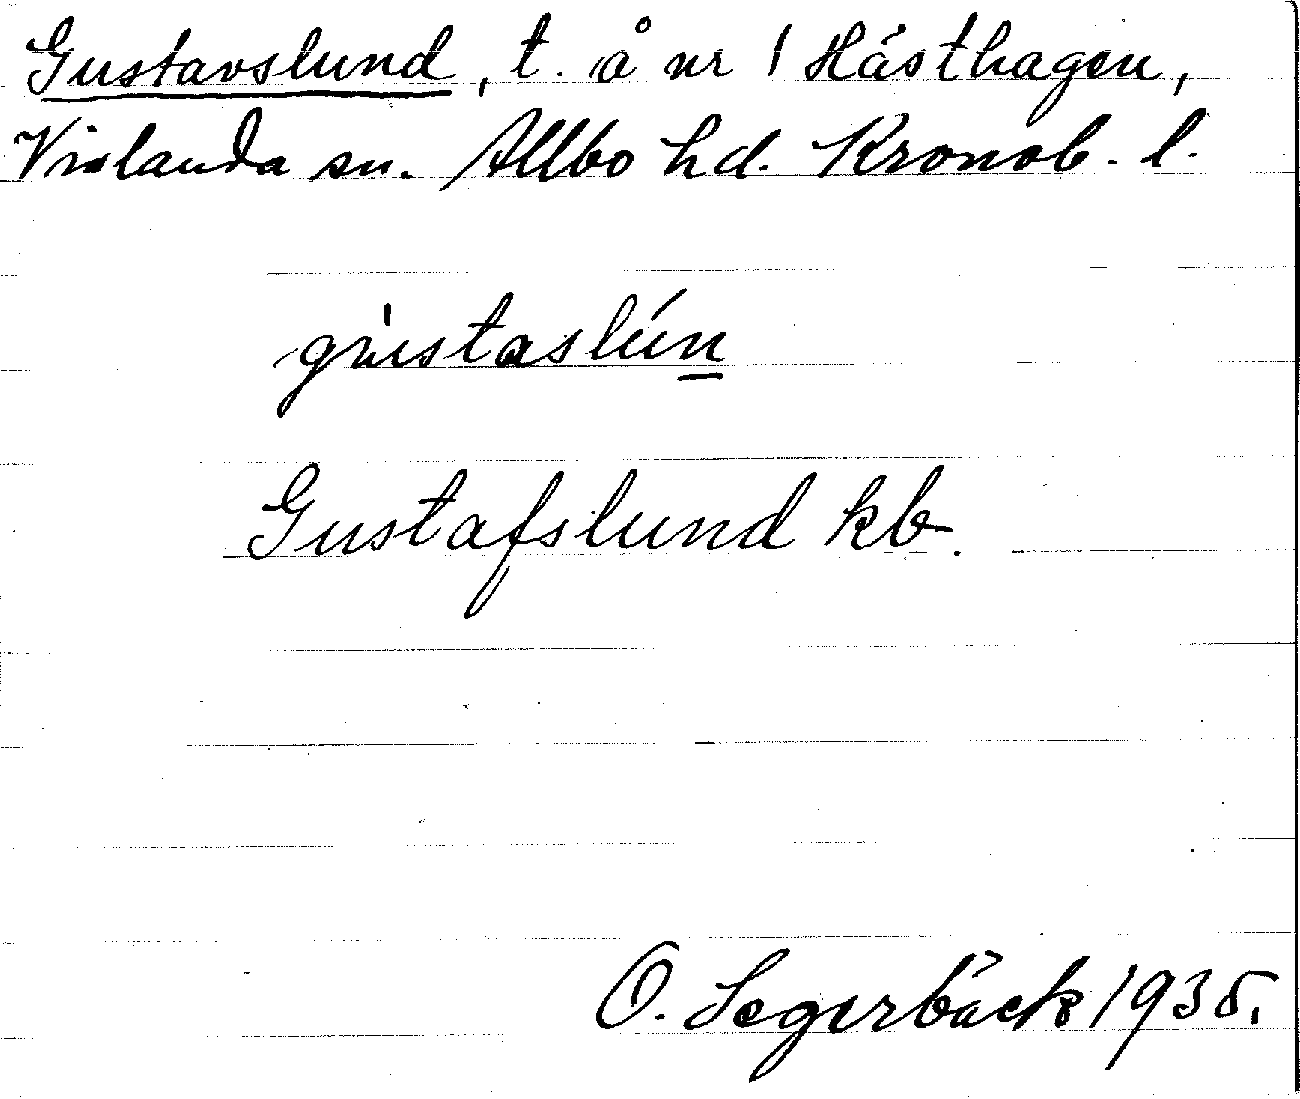 Gustavslund, t. å nr 1 Hästhagen,
Vislanda sn. Allbo hd. Kronob. l.
gùstaslún
Gustafslund kb.
O. Segerbäck 1935.